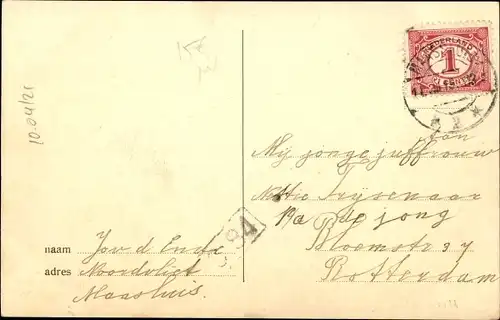 10-04/21
NEDERLAND
1
CENT
2
Aan
Mej jonge juffrouw
Nettie Trysenaar
P/a De jong
Bloemstr 37
Rotterdam
84
naam Jov d Ende
adres Noordvliet
Maasluis.